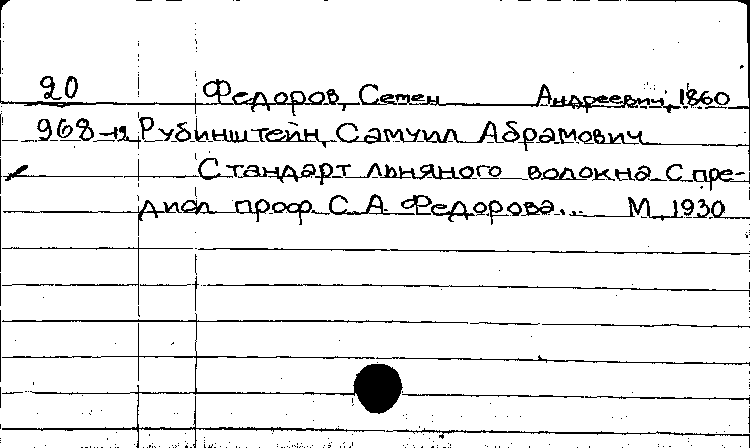 20 Федоров, Семен Андреевич, 1860
968-19 Рубинштейн, Самуил Абрамович
Стандарт льняного волокна С пре-
дисл проф. С. А. Федорова... М, 1930